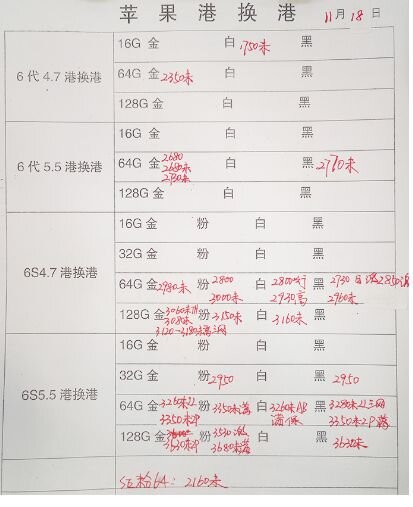 苹果港换港 11月18日
6代4.7港换港
16G 金 白 1750未 黑
64G 金 2350未 白 黑
128G 金 白 黑
6代5.5港换港
16G 金 白 黑
64G 金 2680 2680未 2730未 白 黑 2770未
128G 金 白 黑
6S4.7港换港
16G 金 粉 白 黑
32G 金 粉 白 黑
64G 金 2980未 粉 2800 3000未 白 2800 2930 黑 2930 2960未 2850
128G 金 3060未 3080未 3120-3180未 粉 3150未 白 3160未 黑
6S5.5港换港
16G 金 粉 白 黑
32G 金 粉 2950 白 黑 2950
64G 金 3260未 3350未2P 粉 3350未 白 3260未AB 满保 黑 3280未 3350未2P
128G 金 3630未2P 粉 3530 3680未 白 黑 3630未
红粉64: 2160未